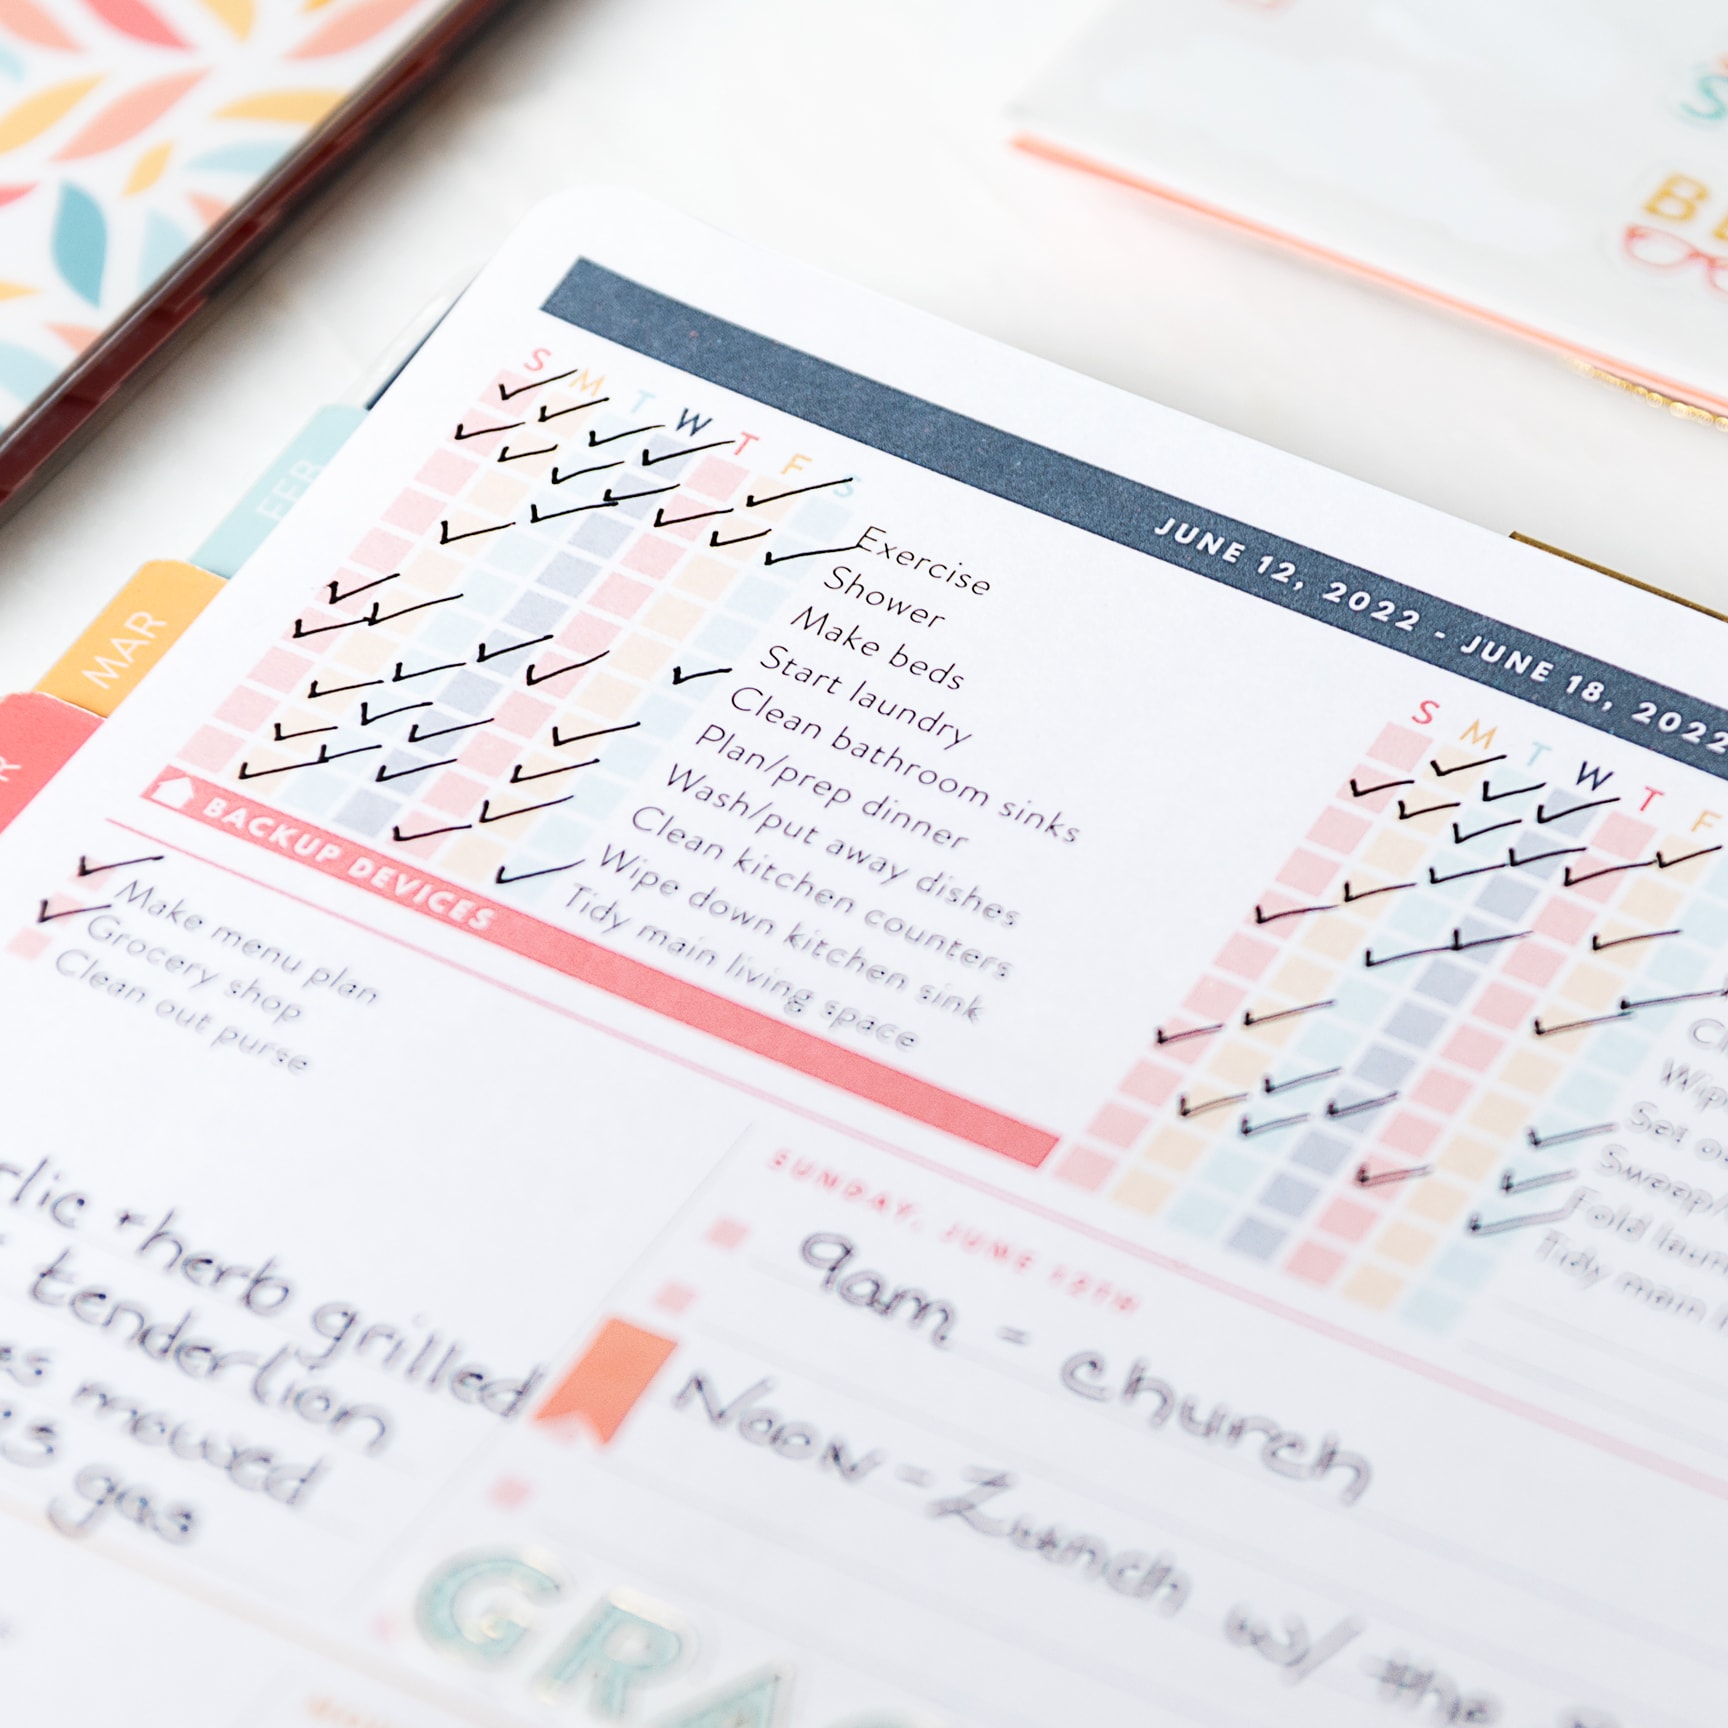 FEB
MAR
JUNE 12, 2022 - JUNE 18, 2022
S M T W T F S
Exercise
Shower
Make beds
Start laundry
Clean bathroom sinks
Plan/prep dinner
Wash/put away dishes
Clean kitchen counters
Wipe down kitchen sink
Tidy main living space
S M T W T F
Fold laun
Tidy main
BACKUP DEVICES
Make menu plan
Grocery shop
Clean out purse
herb grilled
tenderlion
mowed
gas
SUNDAY, JUNE 12TH
9am = church
Noon = Lunch w/ the
GRAC